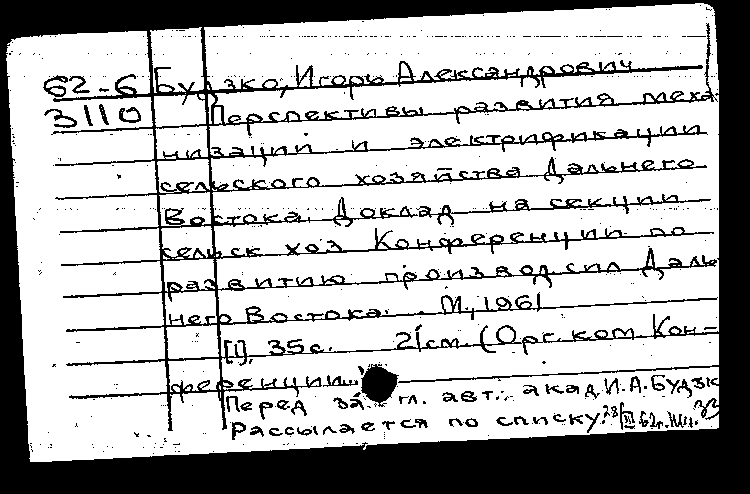 62-6 Будзко, Игорь Александрович
3110 Перспективы развития меха-
низации и электрификации
сельского хозяйства Дальнего
Востока. Доклад на секции
сельск хоз Конференции по
развитию производ. сил Даль
него Востока. М., 1961
[1], 35 с. 21 см. (Орг. ком. Кон=
ференции...
Перед загл. авт.: акад. И.А. Будзк
Рассылается по списку. 28/III 62г.